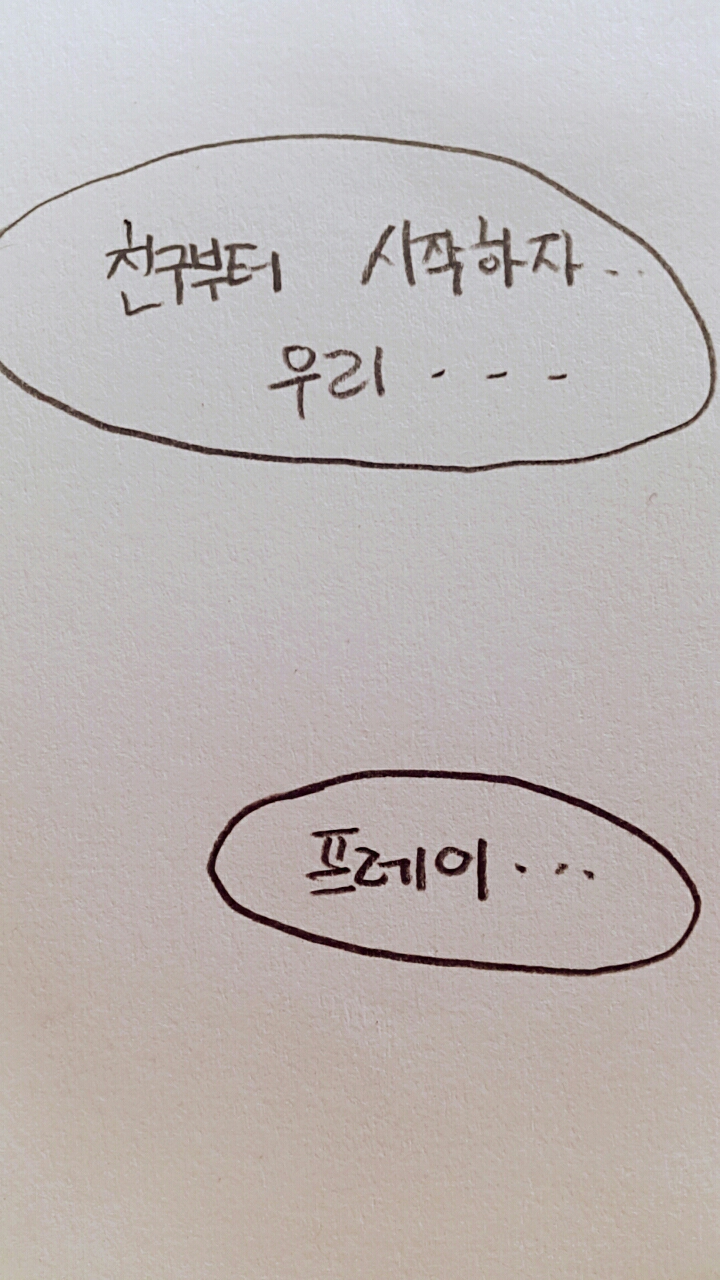 친구부터 시작하자..
우리 - - - -
프레이...